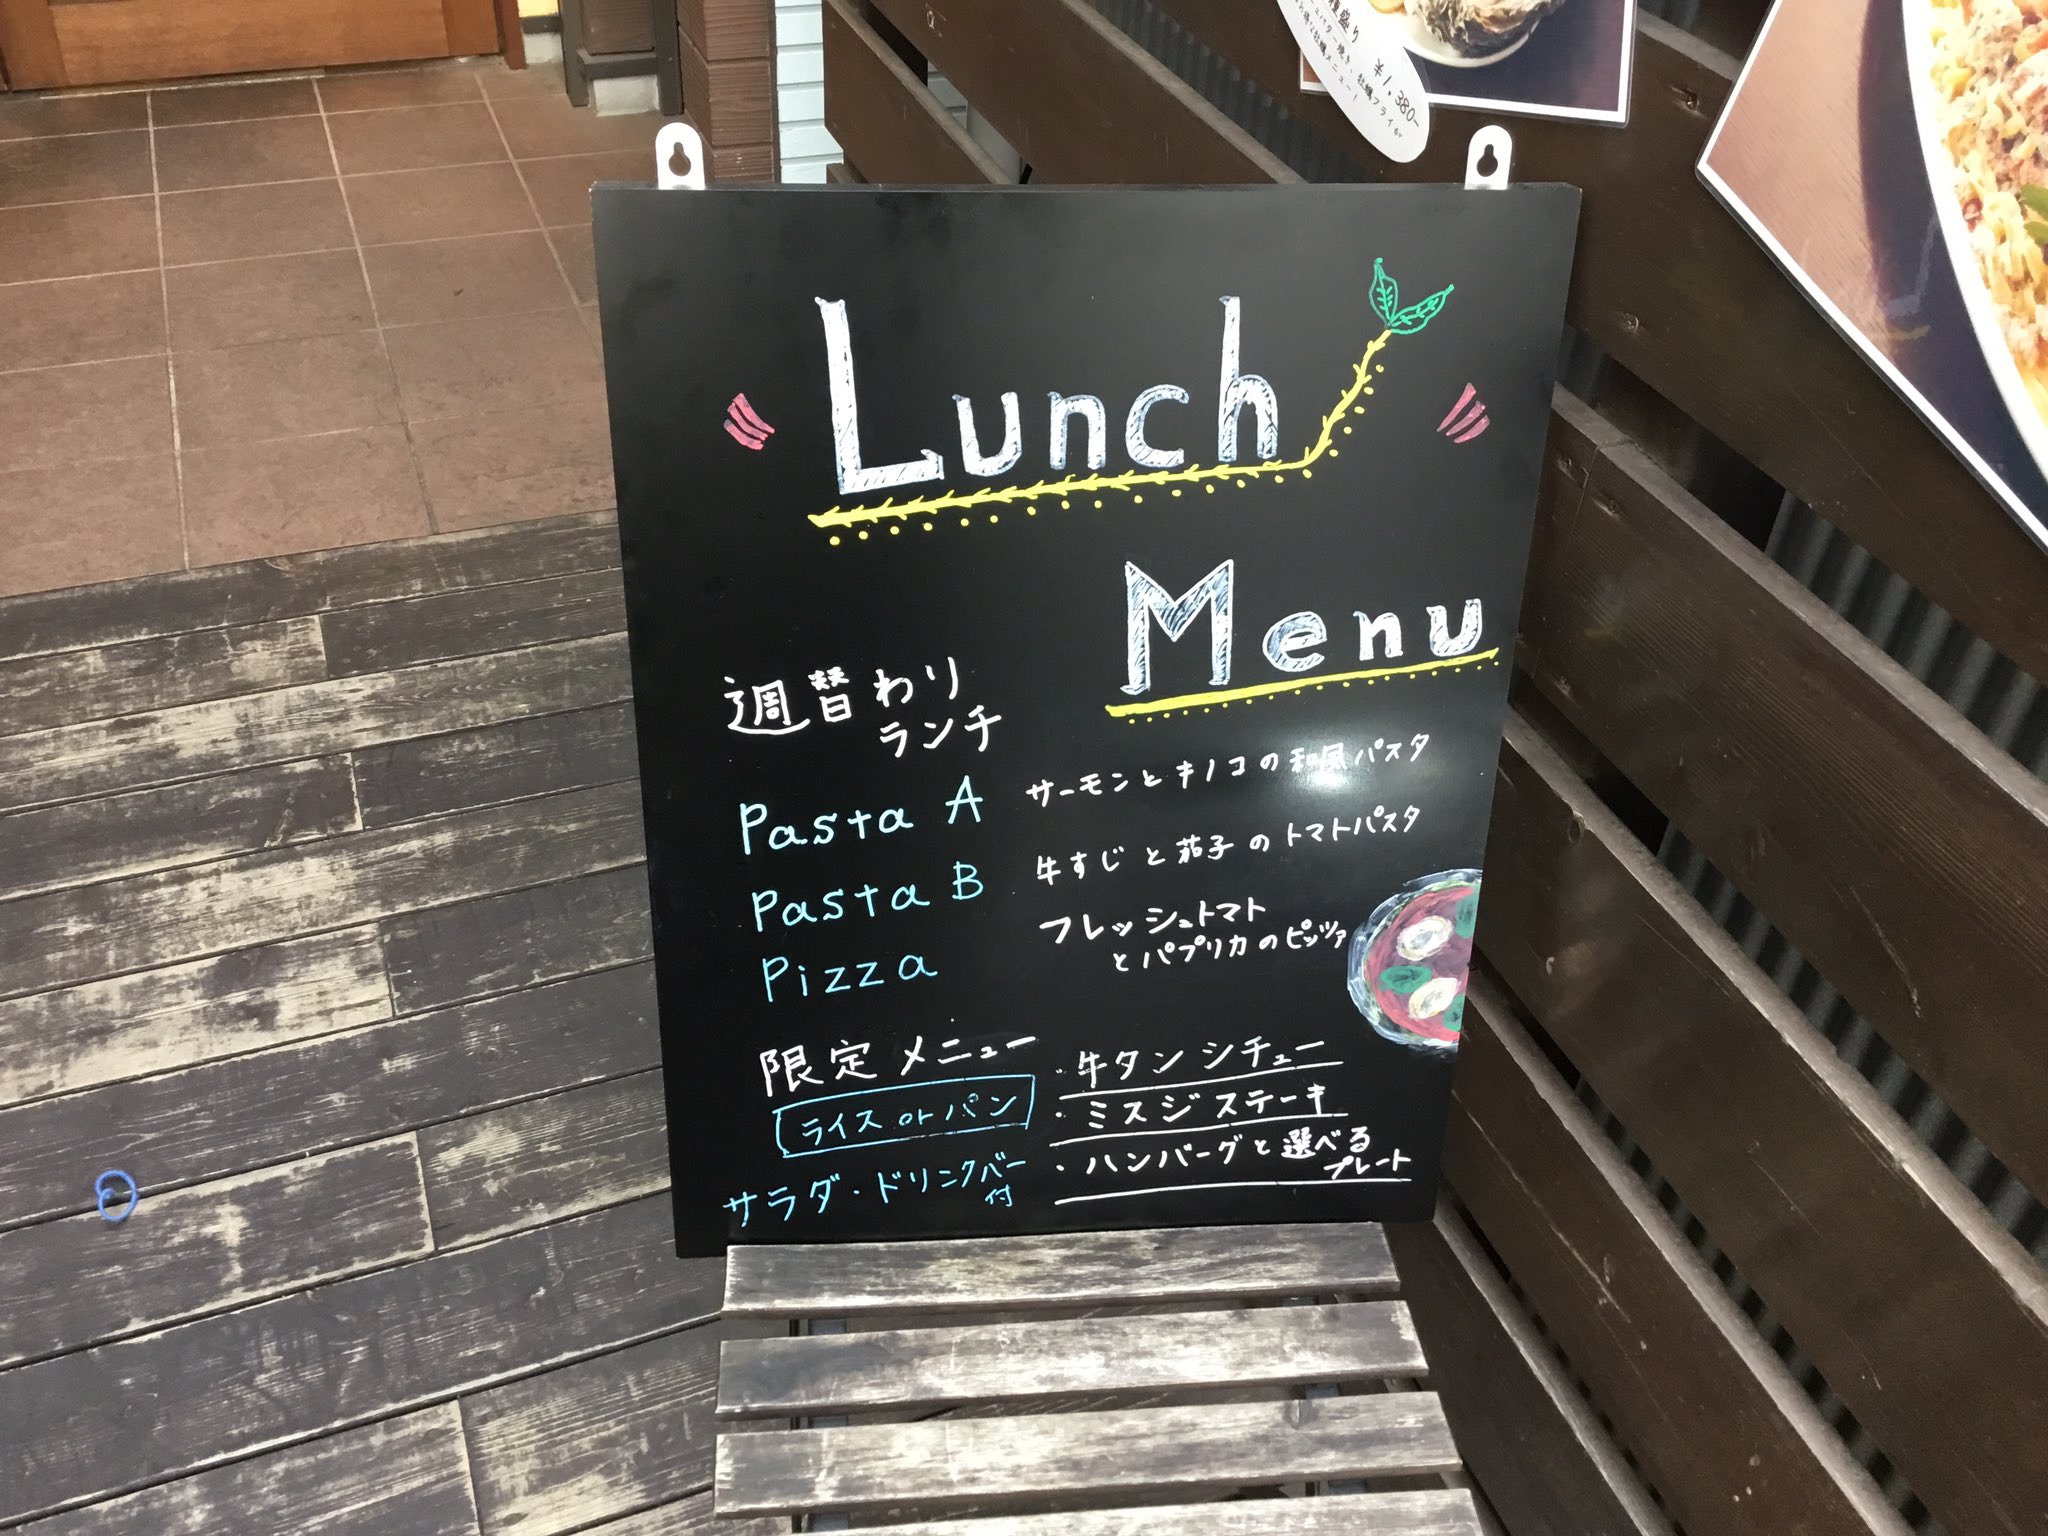 ¥1,380-
Lunch
Menu
週替わり
ランチ
Pasta A サーモンとキノコの和風パスタ
Pasta B 牛すじと茄子のトマトパスタ
Pizza フレッシュトマト
とパプリカのピッツァ
限定メニュー
ライス or パン
サラダ・ドリンクバー
付
・牛タンシチュー
・ミスジステーキ
・ハンバーグと選べる
プレート